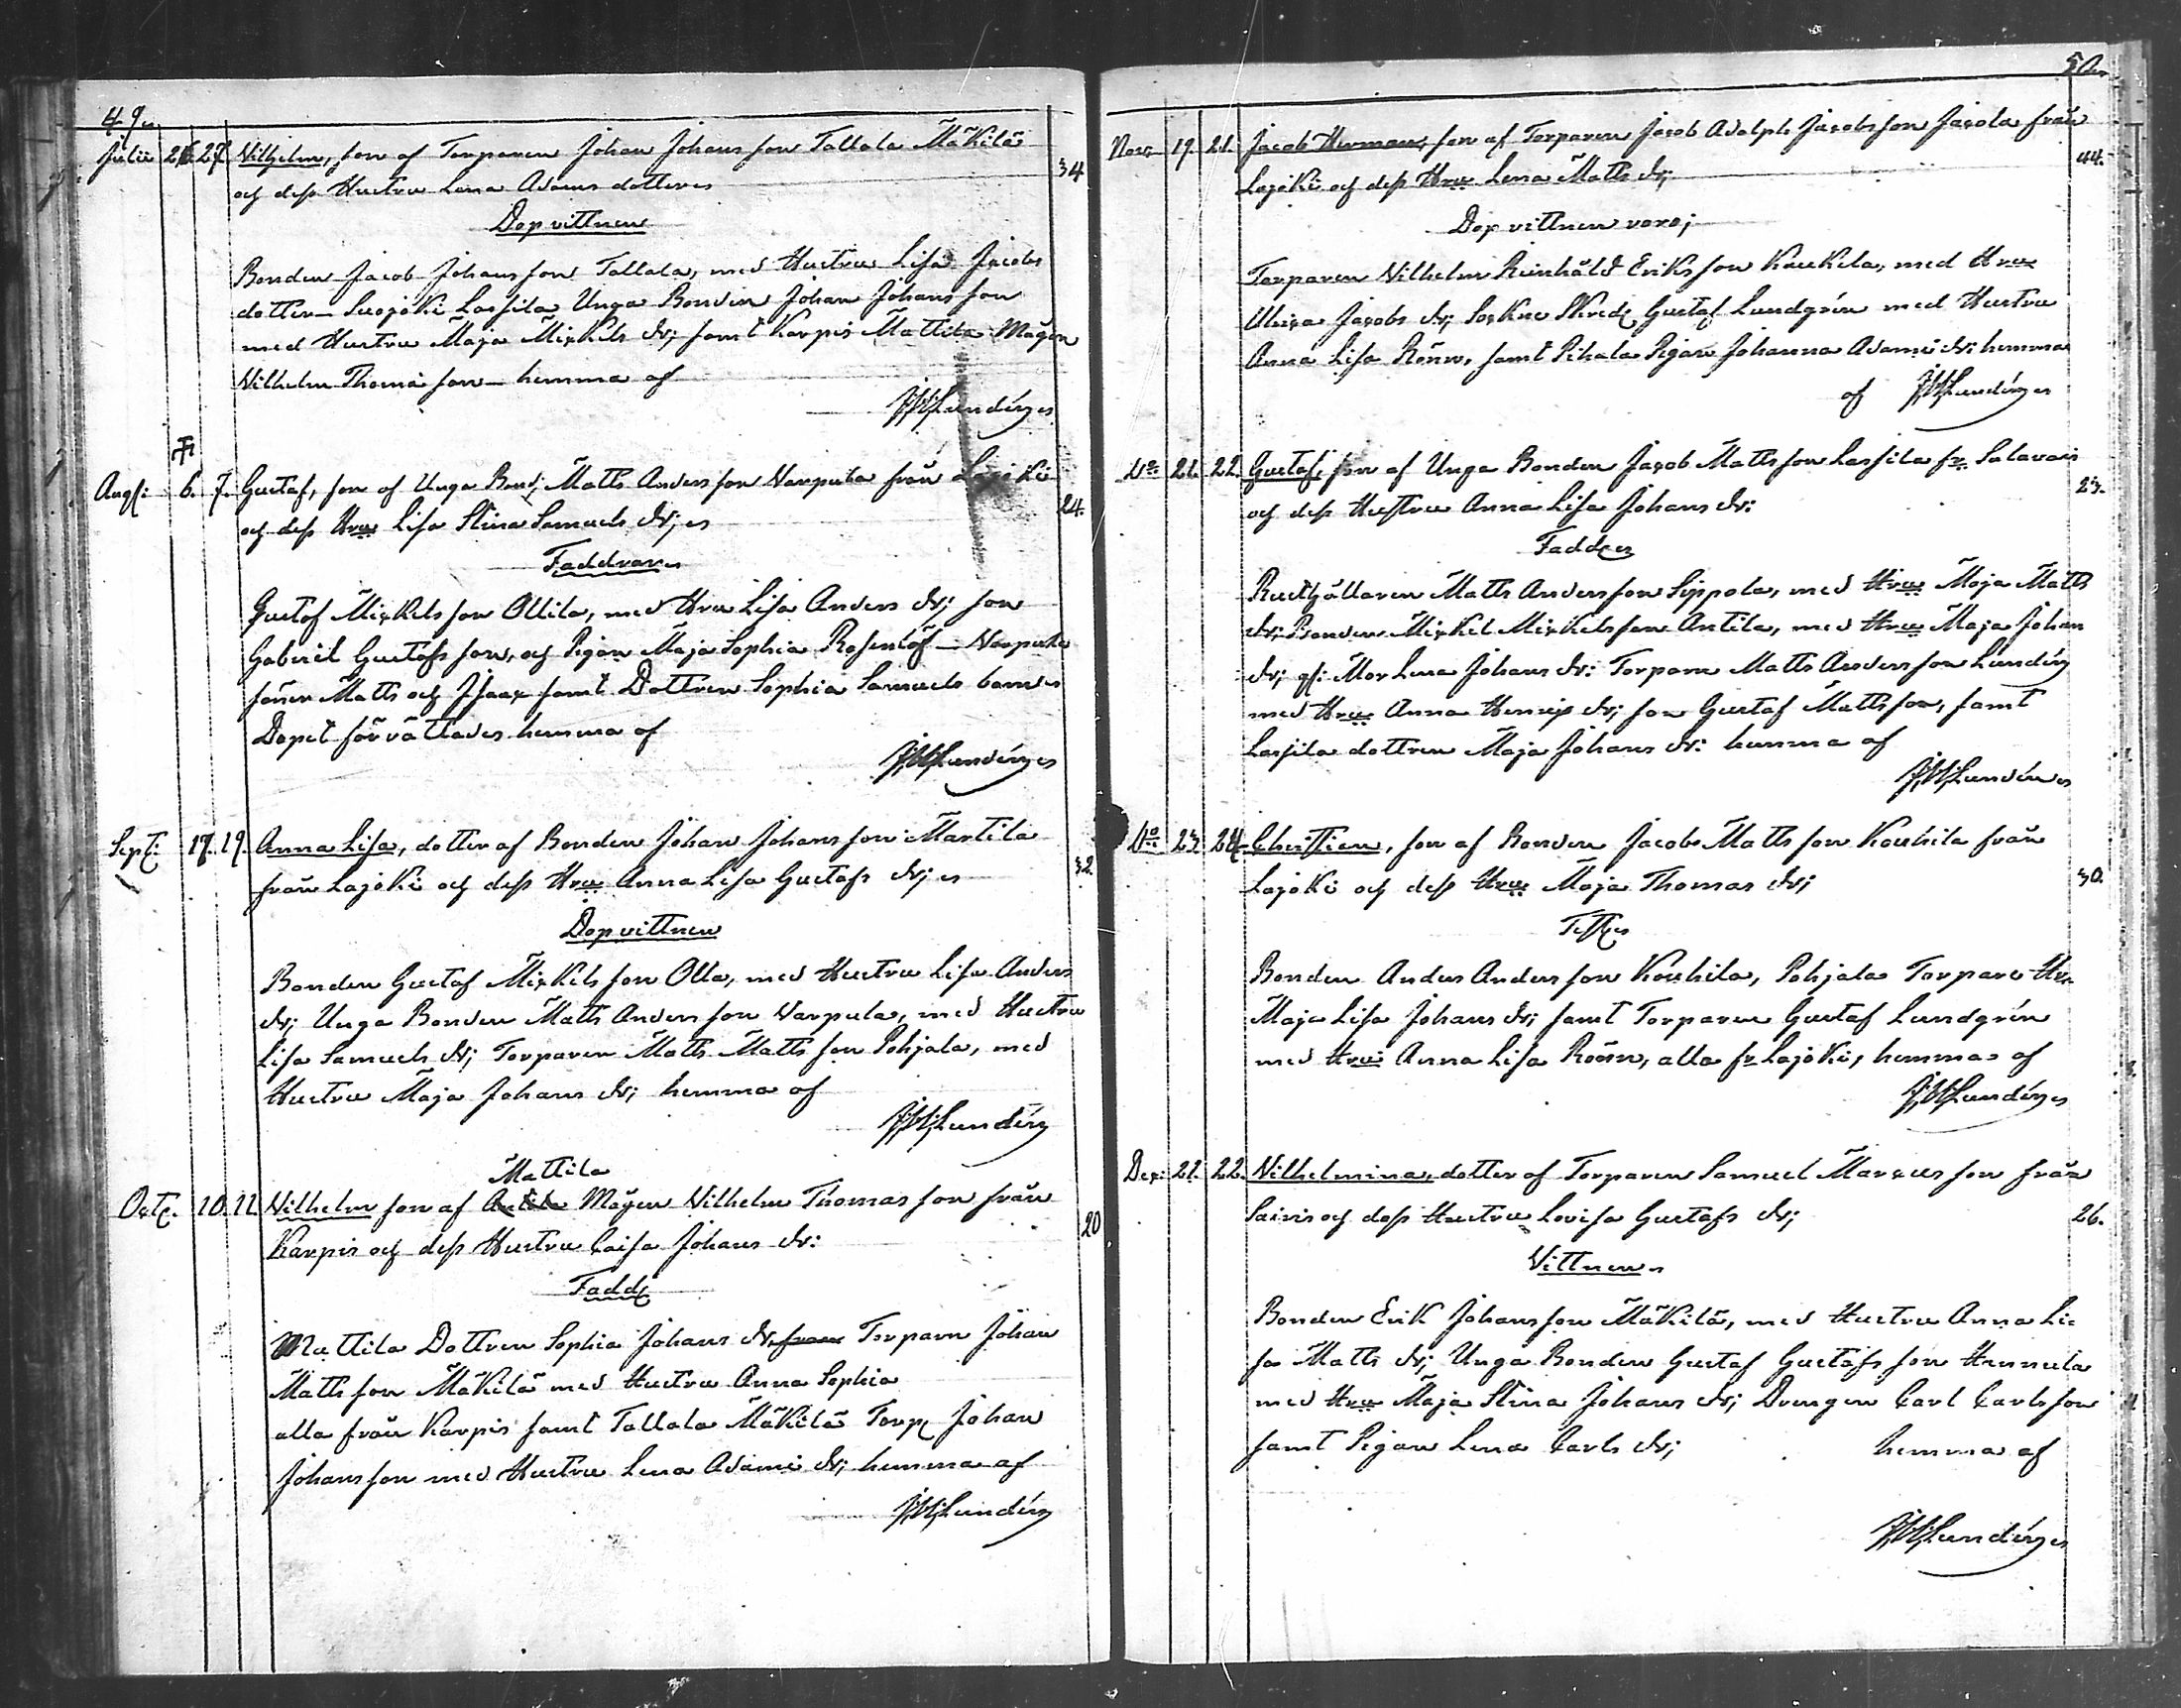 49.
Julii 26. 27. Vilhelm, son af Torparen Johan Johans son Tallala Mäkilä 34
och dess Hustru Lena Adams dotter
Dopvittnen
Bonden Jacob Johans son Tallala, med Hustru Lisa Jacobs
dotter Suojoki Lassila Unga Bonden Johan Johans son
med Hustru Maja Mickels dr; samt Karpis Mattila Mågen
Vilhelm Thomæ son hemma af
JWLundén
Aug: 6. 7. Gustaf, son af Unga Bond; Matts Anders son Varpula från Lajoki 24.
och dess Hru Lisa Stina Samuels dr;
Faddrar
Gustaf Mickels son Ollila, med Hru Lisa Anders dr; son
Gabriel Gustafs son, och Pigan Maja Sophia Rosenlöf Varpula
söner Matts och Isaac samt Dottren Sophia Samuels barn
Dopet förrättades hemma af
JWLundén
Sept: 17. 19. Anna Lisa, dotter af Bonden Johan Johans son Martila 32.
från Lajoki och dess Hru Anna Lisa Gustafs dr;
Dopvittnen
Bonden Gustaf Mickels son Olla, med Hustru Lisa Anders
dr; Unga Bonden Matts Anders son Varpula, med Hustru
Lisa Samuels dr; Torparen Matts Matts son Pohjala, med
Hustru Maja Johans dr; hemma af
JWLundén
Mattila
Oct. 10. 11. Vilhelm son af Mågen Vilhelm Thomas son från 20
Karpis och dess Hustru Caisa Johans dr:
Fadd
Mattila Dottren Sophia Johans dr; Torparn Johan
Matts son Mäkilä med Hustru Anna Sophia
alla från Karpis samt Tallala Mäkilä Torp Johan
Johans son med Hustru Lena Adami dr; hemma af
JWLundén
50.
Nov. 19. 21. Jacob Herman, son af Torparen Jacob Adolph Jacobs son Jacola från 44.
Lajoki och dess Hru Lena Matts dr;
Dopvittnen voro;
Torparen Vilhelm Reinhåld Eriks son Kaukila, med Hru
Ulrica Jacobs dr; Sockne Skredd Gustaf Lundgrén med Hustru
Anna Lisa Röén, samt Pihala Pigan Johanna Adami dr: hemma
af JWLundén
D:o 21. 22. Gustaf, son af Unga Bonden Jacob Matts son Lassila fr. Salavais 23.
och dess Hustru Anna Lisa Johans dr:
Fadd
Rusthållaren Matts Anders son Sippola, med Hru Maja Matts
dr; Bonden Mickel Mickels son Antila, med Hru Maja Johans
dr; gl: Mor Lena Johans dr: Torparn Matts Anders son Lundén
med Hru Anna Henrics dr; son Gustaf Matts son, samt
Lassila dottren Maja Johans dr: hemma af
JWLundén
D:o 23. 24. Christian, son af Bonden Jacob Matts son Kouhila från 30.
Lajoki och dess Hru Maja Thomas dr;
Test
Bonden Anders Anders son Kouhila, Pohjala Torpare Hr.
Maja Lisa Johans dr; samt Torparen Gustaf Lundgrén
med Hru Anna Lisa Röén, alla fr Lajoki, hemma af
JWLundén
Dec: 21. 22. Vilhelmina, dotter af Torparen Samuel Marcus son från 26.
Sairis och dess Hustru Lovisa Gustafs dr;
Vittnen
Bonden Erik Johans son Mäkilä, med Hustru Anna Li=
sa Matts dr; Unga Bonden Gustaf Gustafs son Hannula
med Hru Maja Stina Johans dr; Drengen Carl Carls son
samt Pigan Lena Carls dr; hemma af
JWLundén